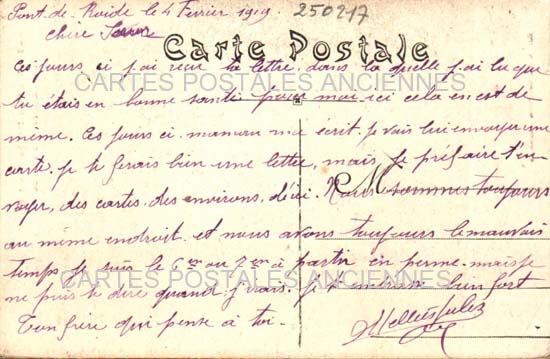 Pont-de-Roide le 4 Fevrier 1919. 250217
chere Soeur
Carte Postale
Ces jours ci j'ai reçu ta lettre, dans la quelle j'ai lu que
CARTES POSTALES ANCIENNES
tu étais en bonne santé. pour moi ici cela en est de
même. Ces jours ci maman m'a écrit. je vais lui envoyer une
carte. je te ferais bien une lettre, mais je préfaire t'en
voyer, des cartes des environs d'ici. Nous sommes toujours
au même endroit. et nous avons toujours le mauvais
temps je suis le 6me ou 7me à partir en perme. mais je
CARTES POSTALES ANCIENNES
ne puis te dire quand j'irais. je t'embrasse bien fort
Ton frère qui pense à toi.